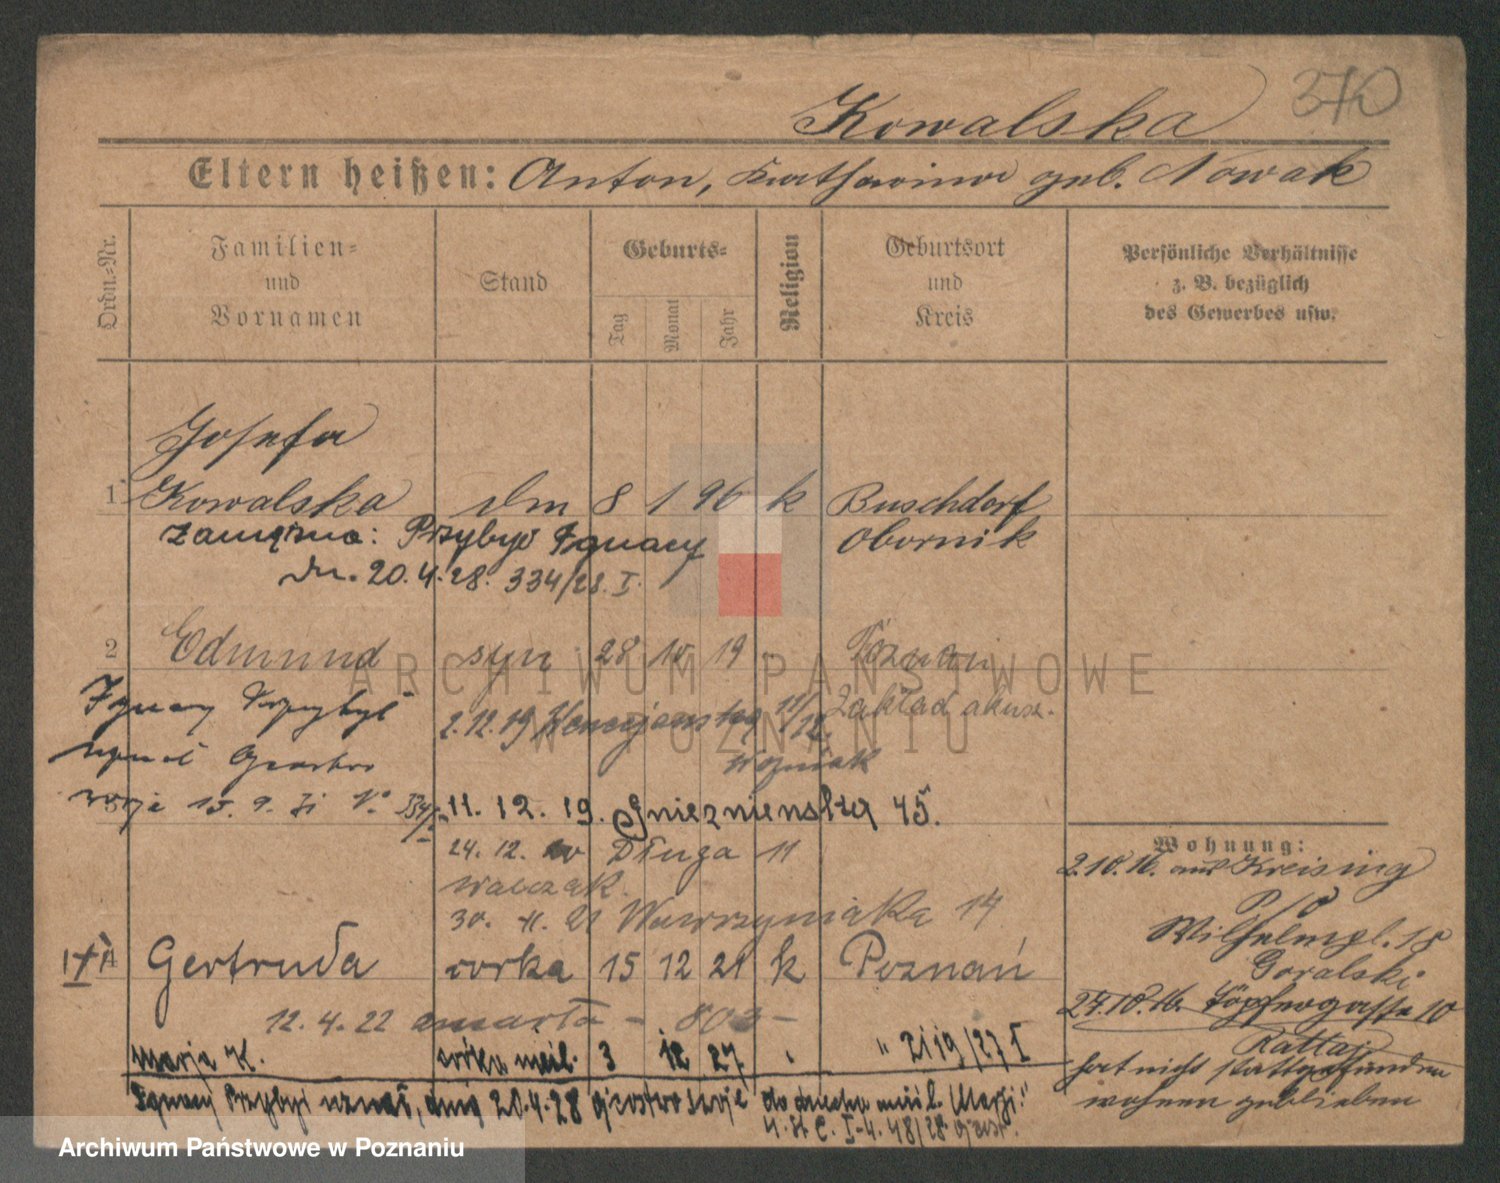 370
Kowalska
Eltern heißen: Anton, Katharina geb. Nowak
Ordn.=Nr.
Familien=
und
Vornamen
Stand
Geburts=
Tag
Monat
Jahr
Religion
Geburtsort
und
Kreis
Persönliche Verhältnisse
z. B. bezüglich
des Gewerbes usw.
Josefa
1 Kowalska dm 8 1 96 k Buschdorf
zamężna: Przybył Ignacy Obornik
dn. 20.4.28. 334/28. I.
2 Edmund syn 28 10 19 Poznań
Ignacy Przybył Zakład akusz.
2.12.19 11/12.
uznał Woźniak
15. 9.
3 11. 12. 19. Gnieźnieńska 45.
24. 12. Długa 11
Walczak.
30. 11. 21 Wawrzyniaka 14
4 Gertruda córka 15 12 21 k Poznań
12. 4. 22 umarła – 803 –
Marja K. córka nieśl. 3 12 27 " 2119/27 I
Ignacy Przybył uznał, dnia 20.4.28 ojcostwo swoje do dziecka nieśl. Marji
Wohnung:
2.10.16. aus Kreising
P/O
Wilhelmpl. 18
Goralski
27.10.16. Töpfergasse 10
Rattaj
hat nicht stattgefunden
wohnen geblieben
ARCHIWUM PAŃSTWOWE
W POZNANIU
Archiwum Państwowe w Poznaniu